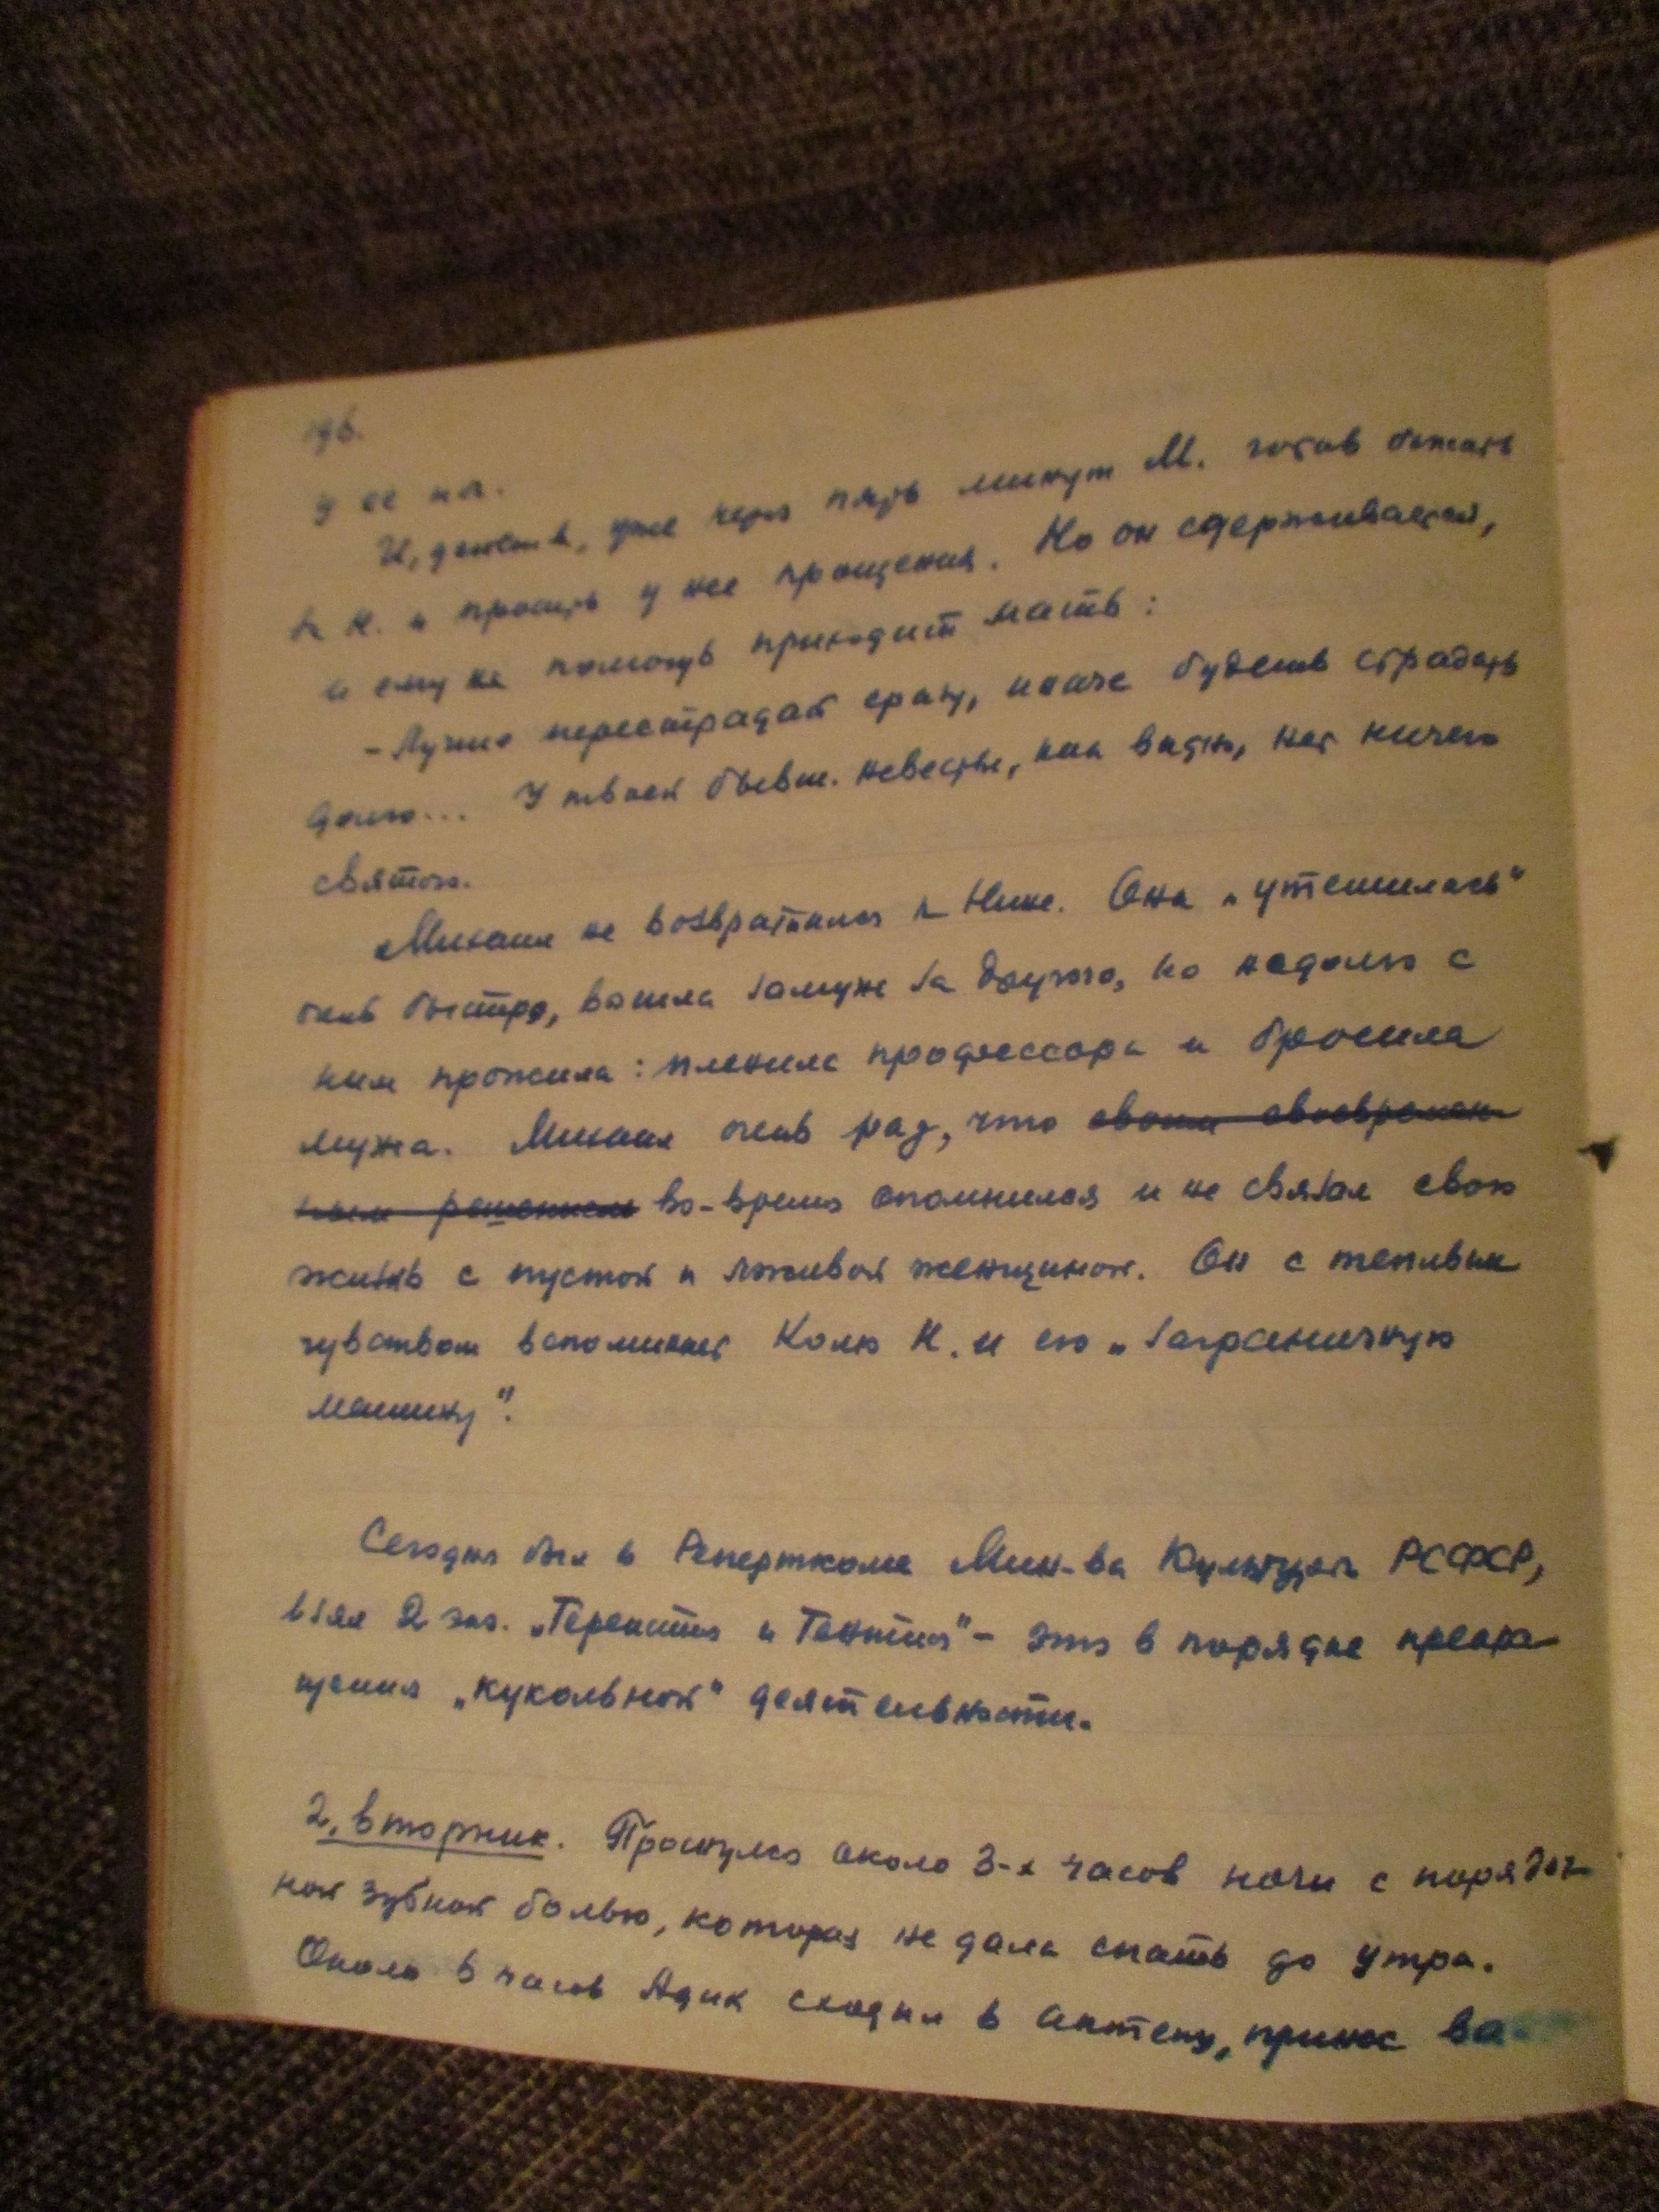 196.
у ее ног.
И, действ., уже через пять минут М. готов бежать
к Н. и просить у нее прощения. Но он сдерживается,
и ему на помощь приходит мать:
- Лучше перестрадай сразу, иначе будешь страдать
долго... У твоей бывш. невесты, как видно, нет ничего
святого.
Михаил не возвратился к Нине. Она „утешилась"
очень быстро, вышла замуж за другого, но недолго с
ним прожила: пленила профессора и бросила
мужа. Михаил очень рад, что своим своевремен-
ным решением во-время опомнился и не связал свою
жизнь с пустой и лживой женщиной. Он с теплым
чувством вспоминает Колю К. и его „заграничную
машину".
Сегодня был в Реперткоме Мин-ва Культуры РСФСР,
взял 2 экз. - это в порядке прекра-
щения „кукольной" деятельности.
2, вторник. Проснулся около 3-х часов ночи с порядоч-
ной зубной болью, которая не дала спать до утра.
Около 6 часов Адик сходил в аптеку, принес ва-